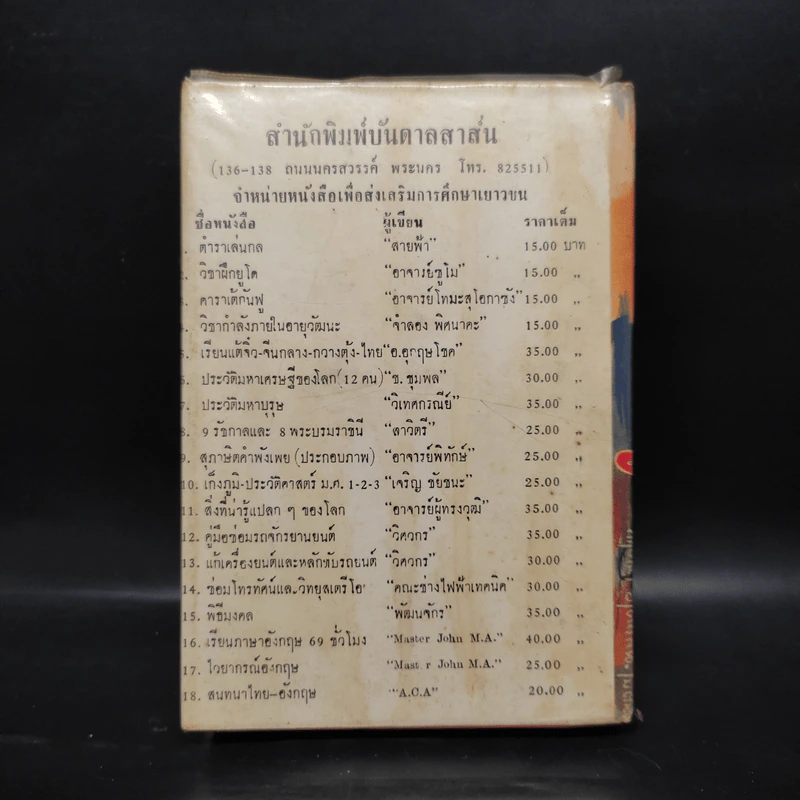 สำนักพิมพ์บันดาลสาส์น
(136-138 ถนนนครสวรรค์ พระนคร โทร. 825511)
จำหน่ายหนังสือเพื่อส่งเสริมการศึกษาเยาวชน
ชื่อหนังสือ ผู้เขียน ราคาเต็ม
1. ตำราเล่นกล "สายฟ้า" 15.00 บาท
2. วิชาฝึกยูโด "อาจารย์ซูโม" 15.00 „
3. คาราเต้กันฟู "อาจารย์โทมะสุโอกาซัง" 15.00 „
4. วิชากำลังภายในอายุวัฒนะ "จำลอง พิศนาคะ" 15.00 „
5. เรียนแต้จิ๋ว-จีนกลาง-กวางตุ้ง-ไทย "อ.อุกฤษโชค" 35.00 „
6. ประวัติมหาเศรษฐีของโลก (12 คน) "ช. ชุมพล" 30.00 „
7. ประวัติมหาบุรุษ "วิเทศกรณีย์" 35.00 „
8. 9 รัชกาลและ 8 พระบรมราชินี "สาวิตรี" 25.00 „
9. สุภาษิตคำพังเพย (ประกอบภาพ) "อาจารย์พิทักษ์" 25.00 „
10. เก็งภูมิ-ประวัติศาสตร์ ม.ศ. 1-2-3 "เจริญ ชัยชนะ" 25.00 „
11. สิ่งที่น่ารู้แปลก ๆ ของโลก "อาจารย์ผู้ทรงวุฒิ" 35.00 „
12. คู่มือซ่อมรถจักรยานยนต์ "วิศวกร" 35.00 „
13. แก้เครื่องยนต์และหลักขับรถยนต์ "วิศวกร" 30.00 „
14. ซ่อมโทรทัศน์และวิทยุสเตริโอ "คณะช่างไฟฟ้าเทคนิค" 30.00 „
15. พิธีมงคล "พัฒนจักร" 35.00 „
16. เรียนภาษาอังกฤษ 69 ชั่วโมง "Master John M.A." 40.00 „
17. ไวยากรณ์อังกฤษ "Master John M.A." 25.00 „
18. สนทนาไทย-อังกฤษ "A.C.A" 20.00 „